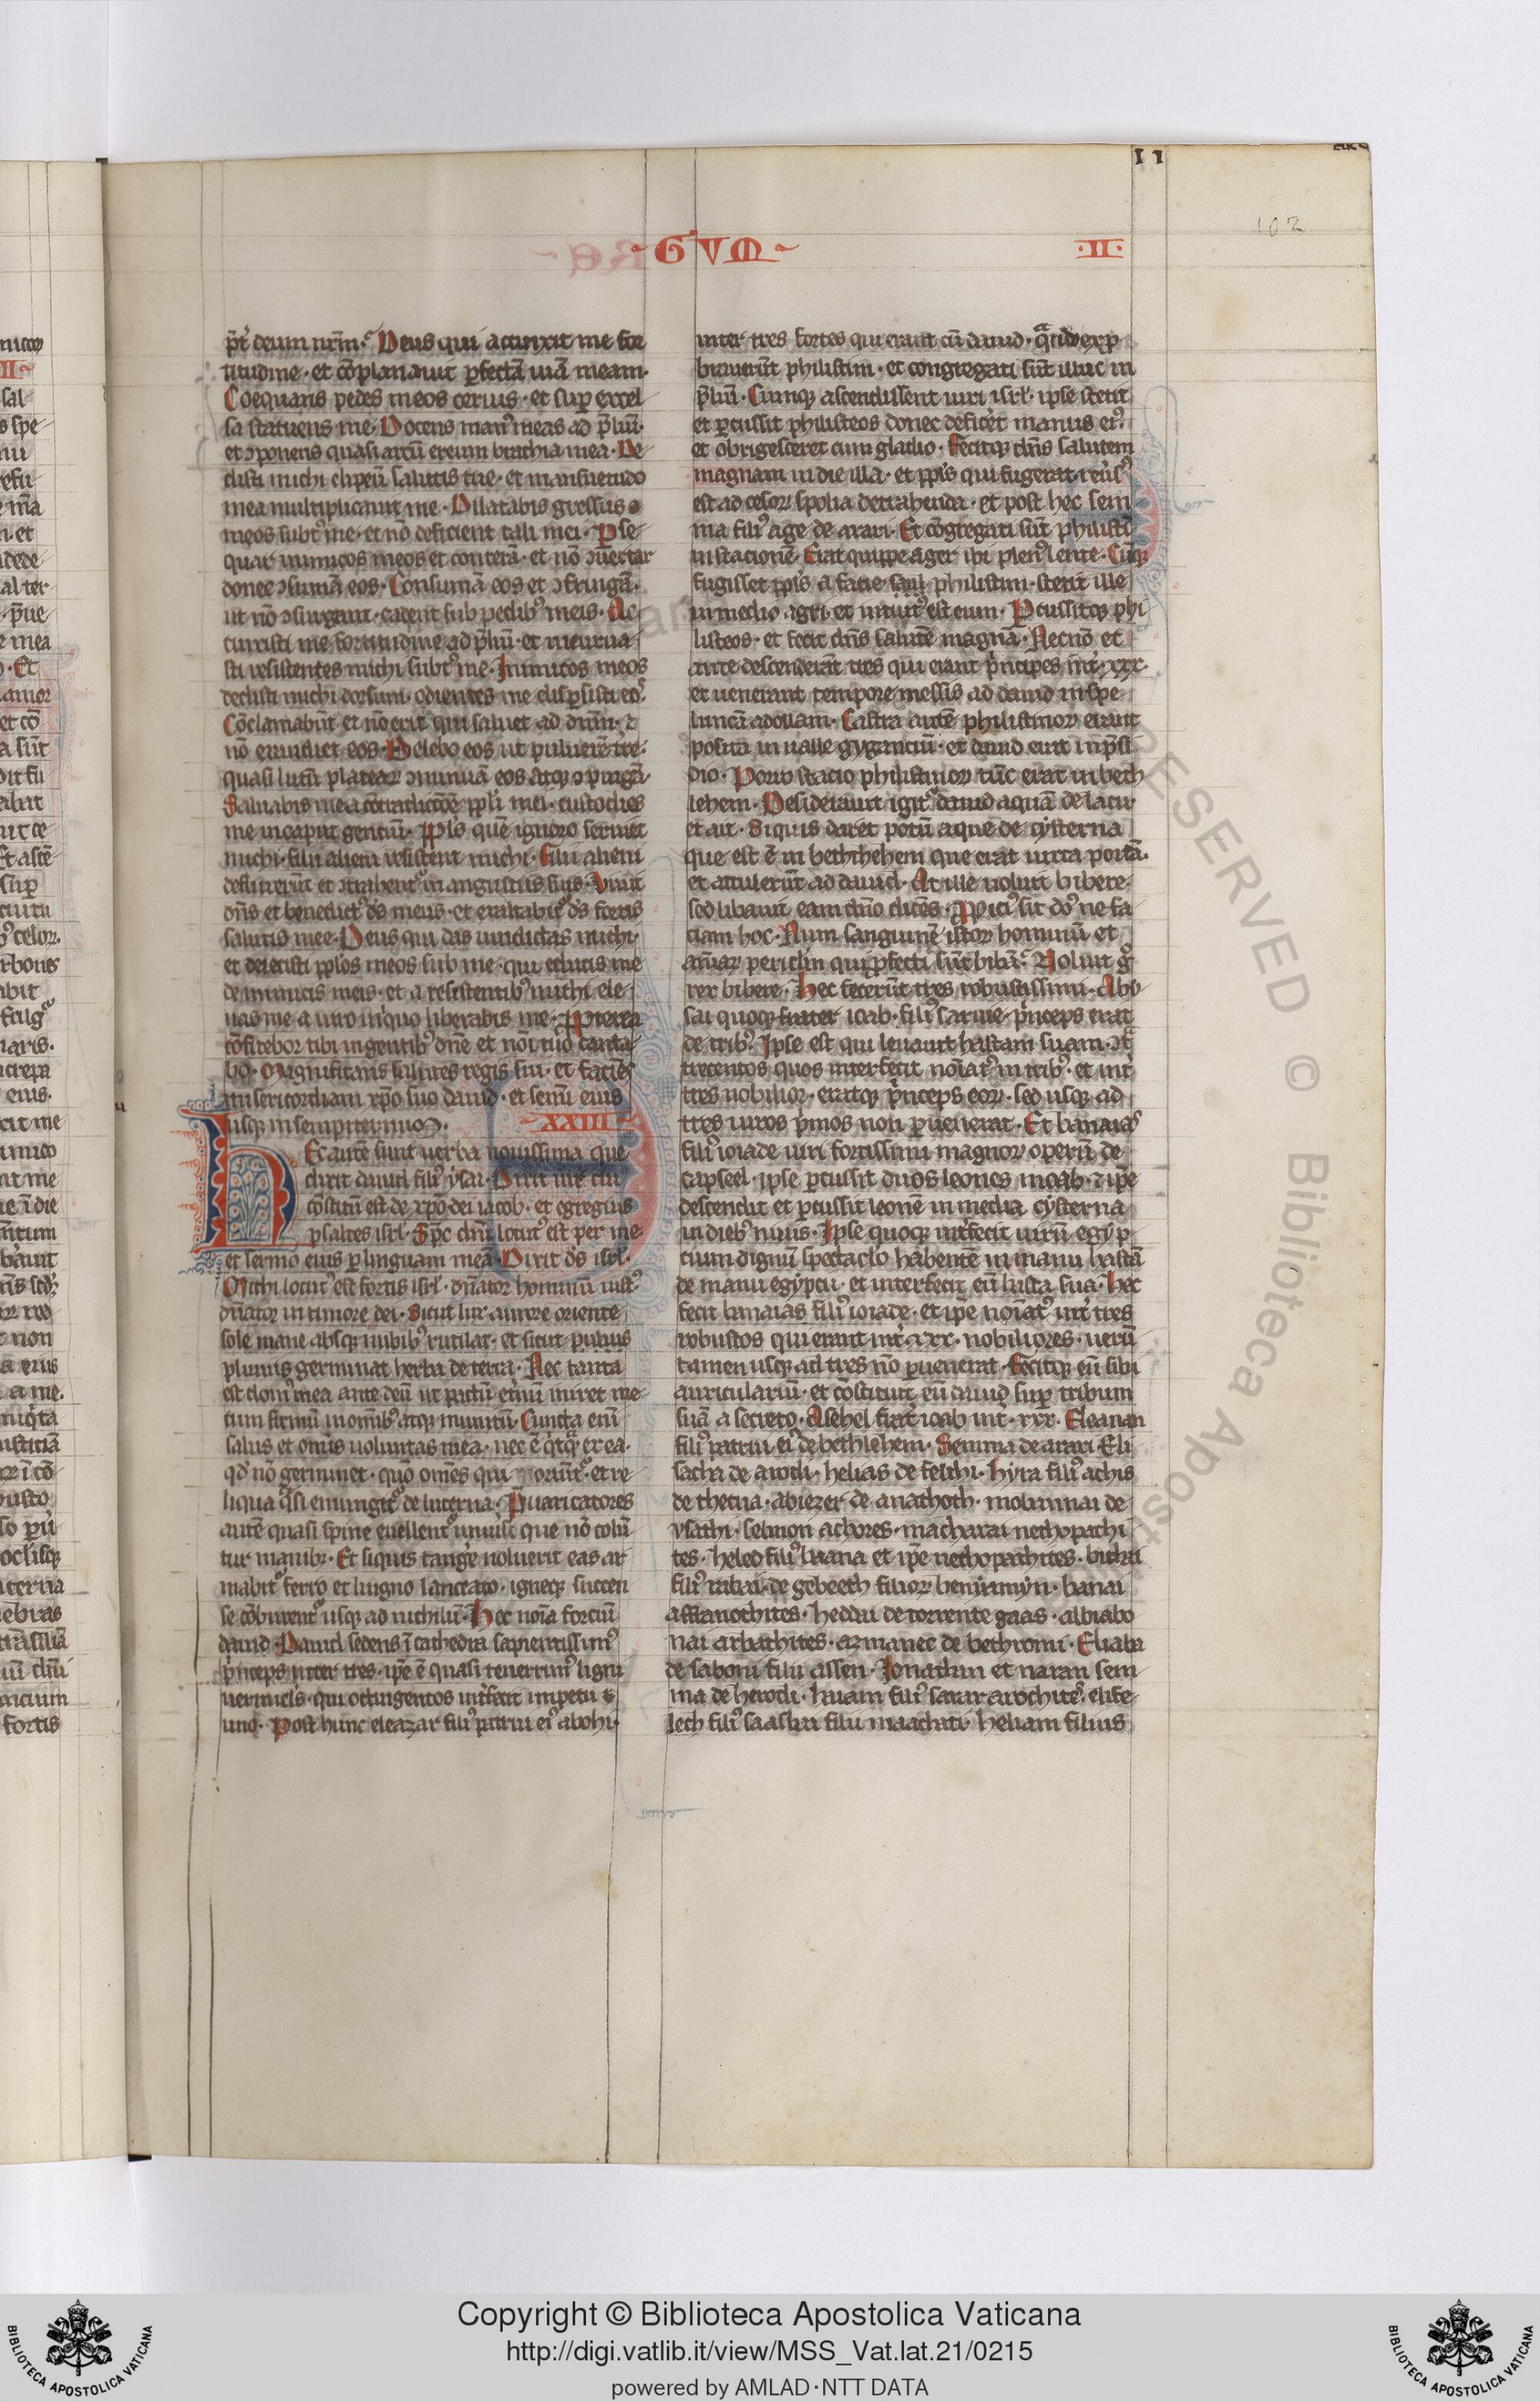 · G V M ·
· II ·
102
p̄t̾ deum nr̄m. Deus qui accinxit me for
titudine · et cōplanauit ꝑfectā uiā meam ·
Coequans pedes meos ceruis · et suꝑ excel
sa statuens me · Docens manꝰ meas ad p̄liū ·
et ↄponens quasi arcū ereum brachia mea · De
disti michi clipeū salutis tue · et mansuetudo
mea multiplicauit me · Dilatabis gressus
meos subtꝰ me · et nō deficient tali mei · Ꝑse
quar inimicos meos et conterā · et nō ↄuertar
donec ↄsumā eos · Consumā eos et ↄfringā ·
ut nō ↄsurgant · cadent sub pedibꝰ meis · Ac
cinxisti me fortitudine ad p̄liū · et incurua
sti resistentes michi subtꝰ me · Inimicos meos
dedisti michi dorsum · odientes me · et disꝑsisti eoꝰ
Cōclamabūt et nō erit qui saluet ad dnm̄ · ⁊
nō exaudiet eos · Delebo eos ut puluerē tr̄re ·
quasi lutū plateaꝝ ↄminuā eos atqꝫ ↄpingā ·
Saluabis me a ↄtradictiōe ppl̄i mei · custodies
me in caput gentiū · Ppl̄s quē ignoro seruiet
michi · filii alieni resistent michi · filii alieni
defluxerūt et ↄtrahentᷣ in angustiis suis · Viuit
dn̄s et benedictꝰ ds̄ meus · et exaltabitᷣ ds̄ fortis
salutis mee · Deus qui das uindictas michi ·
et deiecisti ppl̄os meos sub me · qui educis me
de inimicis meis · et a resistentibꝰ michi ele
uas me a uiro iniquo liberabis me · Ꝓpterea
cōfitebor tibi in gentibꝰ dn̄e et nōi tuo canta
bo · Magnificans salutes regis sui · et facies
misericordiam xp̄o suo dauid · et semi eius
usqꝫ in sempiternuꝫ ·
XXIII
Hec autē sunt uerba nouissima que
dixit dauid filiꝰ ysai · Dixit uir cui
cōstitutū est de xp̄o dei iacob · et egregius
psaltes isrl̄ · Sp̄c dn̄i locutꝰ est per me
et sermo eius ꝑ linguam meā · Dixit ds̄ isrl̄ ·
Michi locutꝰ est fortis isrl̄ · dn̄ator hominū iustꝰ
dn̄ator in timore dei · Sicut lux aurore oriente
sole mane absqꝫ nubibꝰ rutilat · et sicut pluuiis
pluuiis germinat herba de terra · Nec tanta
est domꝰ mea ante deū ut pactū et̾nū iniret me
cum firmū in omībꝰ atqꝫ munitū · Cuncta eni
salus et omīs uoluntas mea · nec ē qͥcqͣ ex ea ·
qd̄ nō germinet · et re
liqua qͣsi emungitᷣ de lucerna · P̄uaricatores
autē quasi spine euellentᷣ uniuīse que nō tolū
tur manibꝫ · Et siquis tang̾e uoluerit eas ar
mabitᷣ ferro et ligno lanceato · igneqꝫ succen
se cōburentᷣ usqꝫ ad nichilū · Hec noīa fortiū
dauid · Dauid sedens ī cathedra sapientissimꝰ
pͥnceps inter tres · ipē ē quasi tenerrimꝰ ligni
uermiculꝰ · qui octingentos int̾fecit impetu
uno · Post hunc eleazar filiꝰ patrui eiꝰ ahohi
inter tres fortes qui erant cū dauid · qͣndo exꝓ
brauerūt philistim · et congregati sūt illuc in
p̄liū · Cumqꝫ ascendissent uiri isrl̄ · ipse stetit
et ꝑcussit philisteos donec defic̾et manus eiꝰ
et obrigesceret cum gladio · Fecitqꝫ dn̄s salutem
magnam in die illa · et ppl̄s qui fugerat reu̾sꝰ
est ad cesoꝝ spolia detrahenda · et post hec sem
ma filiꝰ age de arari · Et cōgregati sūt philistī
in stacione · Erat quippe ager ibi plenꝰ lente · Cūqꝫ
fugisset ppl̄s a facie saul philistim · stetit ille
in medio agri et tuitꝰ est eum · Ꝑcussitqꝫ phi
listeos · et fecit dn̄s salutē magnā · Necnō et
ante descenderāt tres qui erant pͥncipes int̾ · xxx ·
et uenerant tempore messis ad dauid in spe
luncā adollam · Castra autē philistinoꝝ erant
posita in ualle gygantiū · et dauid erat in p̄si
dio · Porro stacio philistinoꝝ tūc erat in beth
lehem · Desiderauit igitᷣ dauid aquā de lacu
et ait · Siquis daret potū aque de cysterna
que est ē in bethlehem que erat iuxta portā ·
et attulerūt ad dauid · At ille noluit bibere ·
sed libauit eam dn̄o dicēs · Ꝓpiciꝰ sit dō ne fa
ciam hoc · Num sanguinē istoꝝ hominū et
aīaꝝ periclm̄ qui ꝓfecti sūt bibā · Noluit gͦ
rex bibere · Hec fecerūt tres robustissimi · Abi
sai quoqꝫ frater ioab · filiꝰ saruie pͥnceps erat
de tribꝰ · Ipse est qui leuauit hastam suam · ↄtͣ
trecentos quos interfecit noīatꝰ in tribꝰ · et int̾
tres nobilior · eratqꝫ pͥnceps eoꝝ · sed usqꝫ ad
tres uiros pͥmos non ꝑuenerat · Et banaias
filiꝰ ioiade uiri fortissimi magnoꝝ operū de
capseel · ipse ꝑcussit duos leones moab · ⁊ ipē
descendit et ꝑcussit leonē in media cysterna
in diebꝰ niuis · Ipse quoqꝫ int̾fecit uirū egyp
tium dignū spectaclo habentē in manu hastā
de manu egyptii · et interfecit eū hasta sua · Hec
fecit banaias filiꝰ ioiade · et ipē noīatꝰ int̾ tres
robustos qui erant int̾ · xxx · nobiliores · uerū
tamen usqꝫ ad tres nō ꝑuenerat · Fecitqꝫ eū sibi
auriculariū · et cōstituit eū dauid suꝑ tribum
suā a secreto · Asehel frat̾ ioab int̾ · xxx · Eleanan
filiꝰ patrui eiꝰ de bethlehem · Semma de arari · Eli
sacha de arodi · helias de felthi · hyra filiꝰ achis
de thecua · abiezer de anathoth · mobunnai de
vsathi · selmon achores · macharai nethopathi
tes · heled filiꝰ baana et ipē nethopathites · bithai
filiꝰ rabai · de gebeeth filioꝝ beniamyn · banai
affranothites · heddai de torrente gaas · albiabo
nai arbathites · azmanec de bethromi · Eliaba
de saboni filii assen · Jonathan et naran sem
ma de herodi · haiam filiꝰ sarar arochitēꝰ · elife
lech filiꝰ saasbai filii maachati · heliam filius
Copyright © Biblioteca Apostolica Vaticana
http://digi.vatlib.it/view/MSS_Vat.lat.21/0215
powered by AMLAD·NTT DATA
BIBLIOTECA APOSTOLICA VATICANA
BIBLIOTECA APOSTOLICA VATICANA
RESERVED © Biblioteca Apost